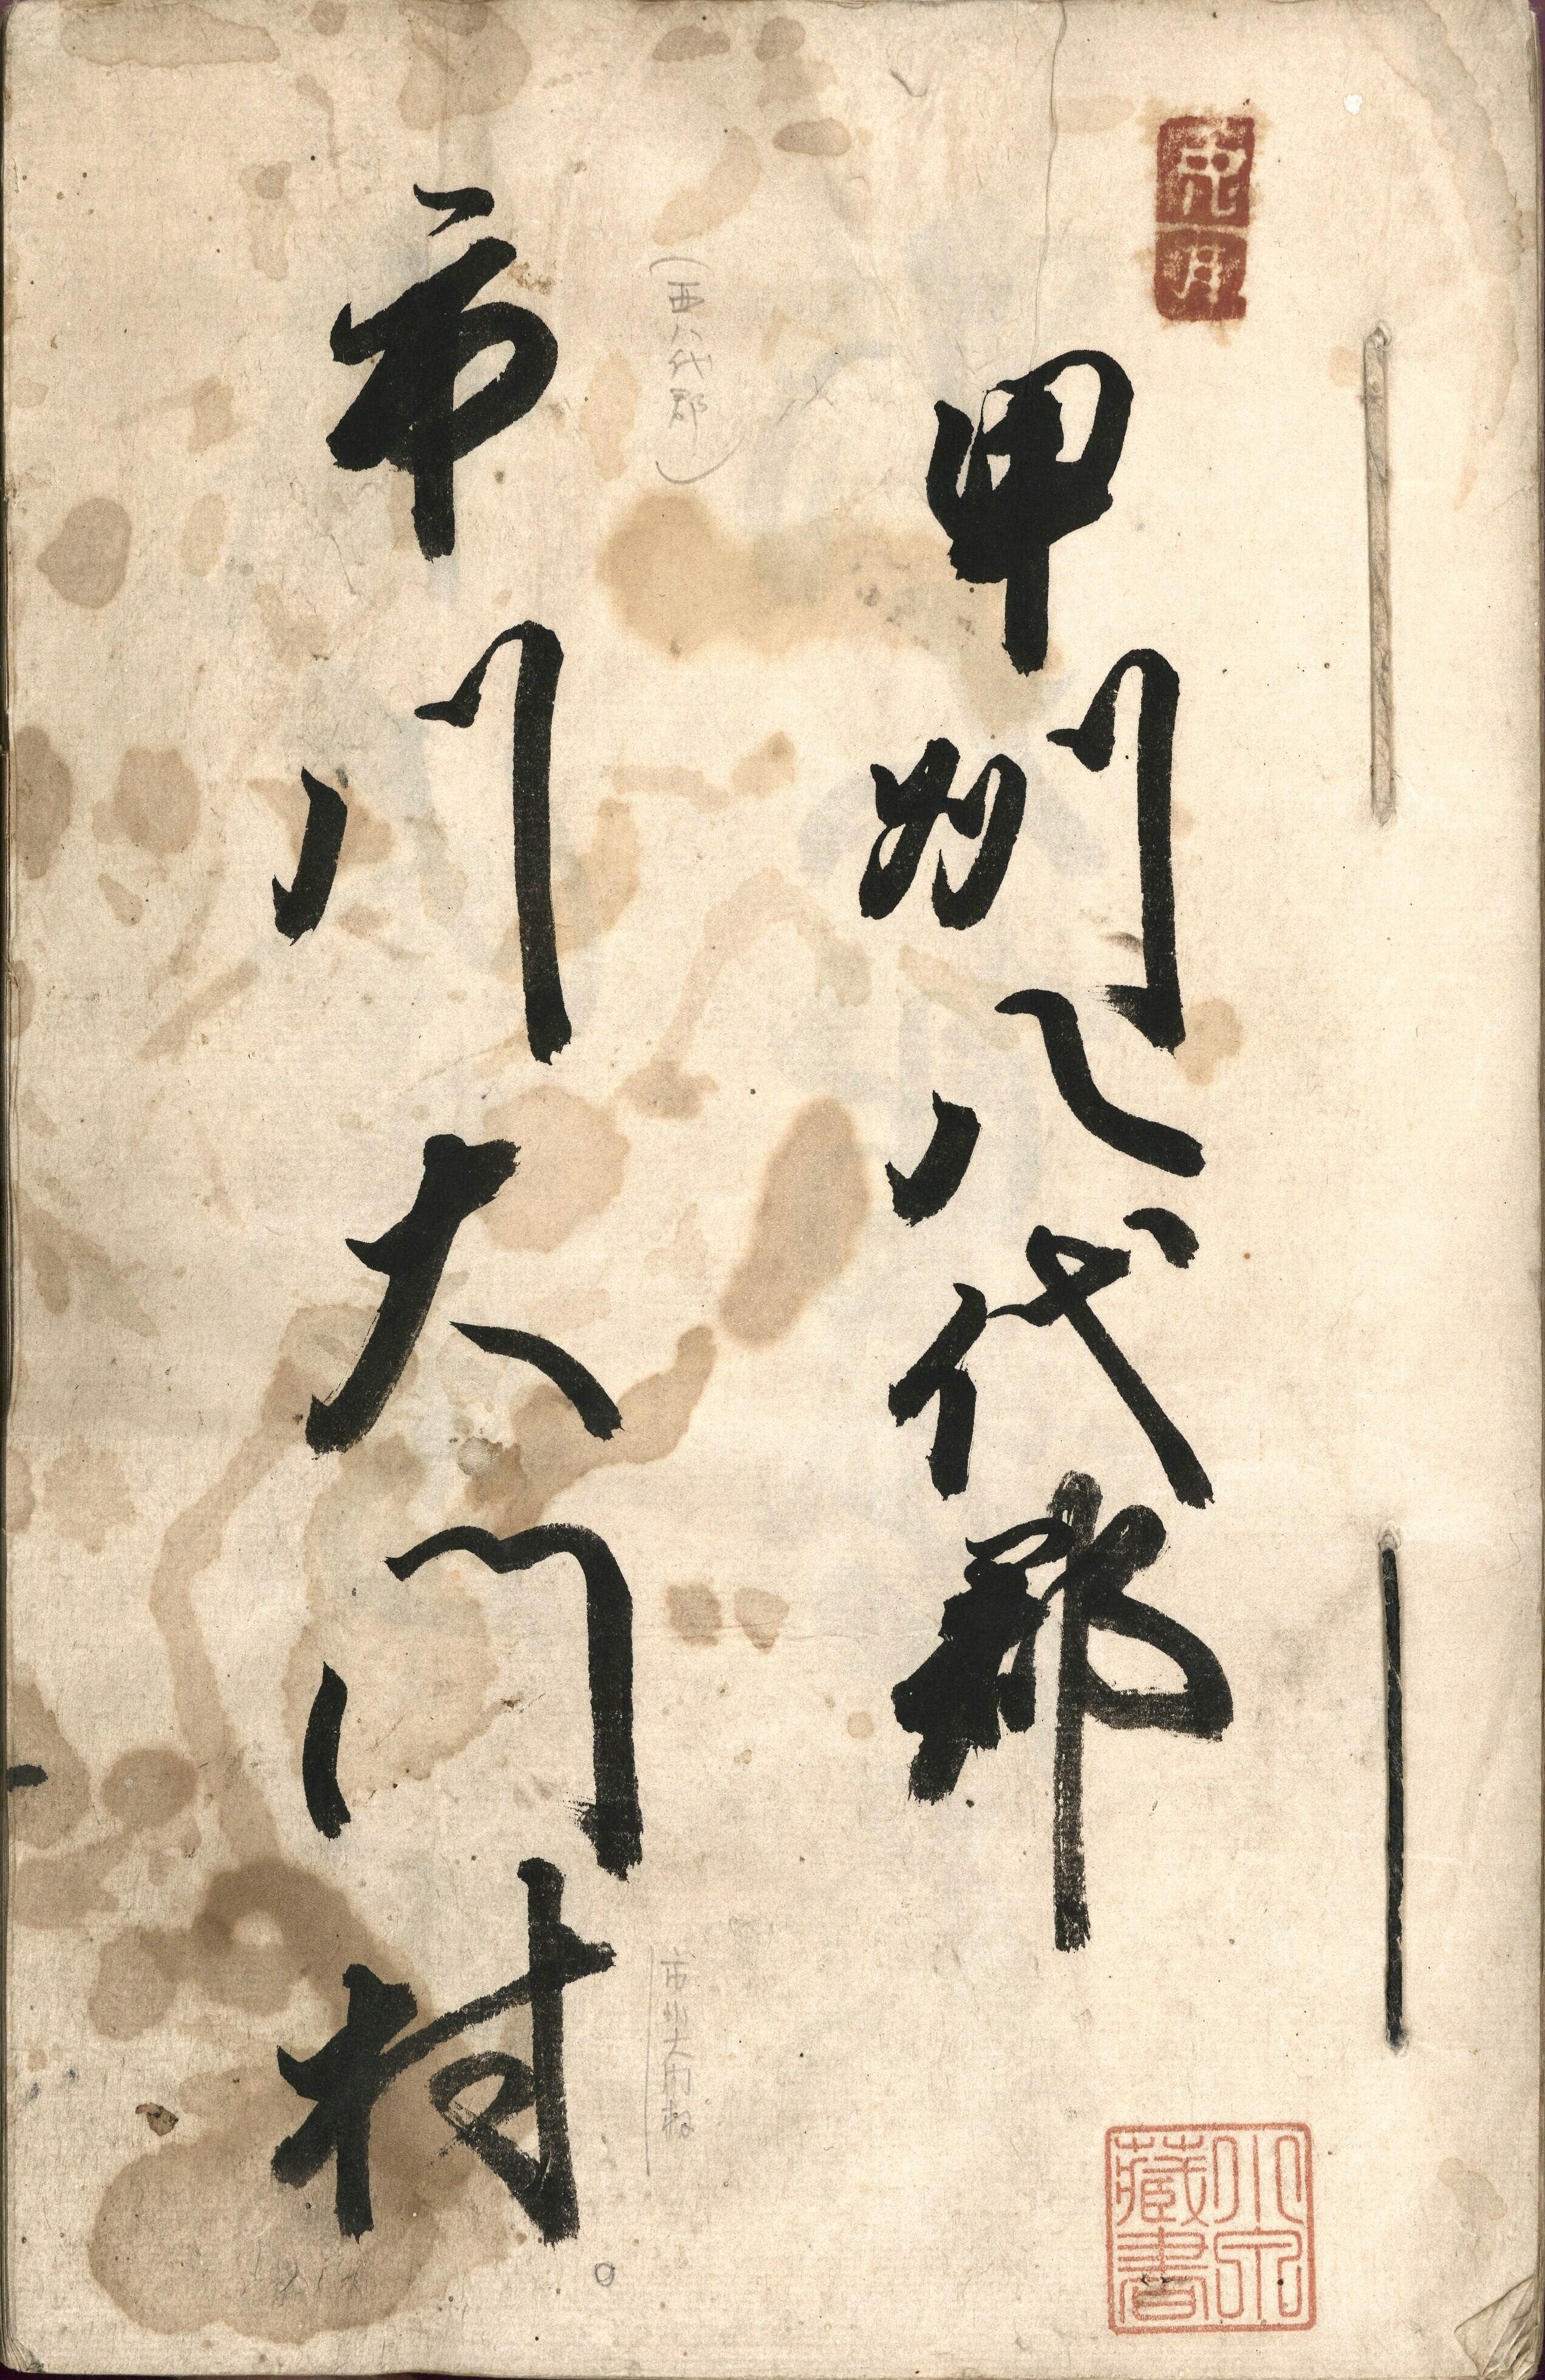 甲州八代郡
(西八代郡)
市川大門村
市川大門村
藏書